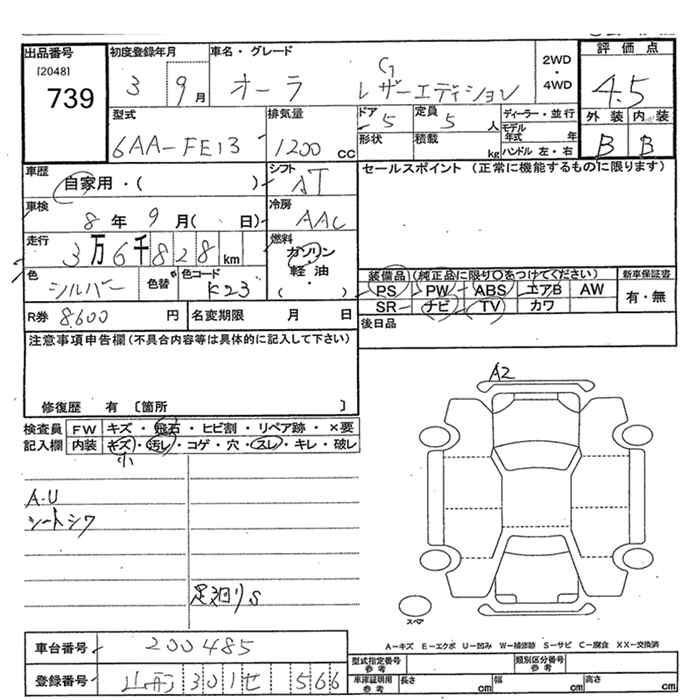 出品番号
[2048]
739
初度登録年月
3 9月
車名・グレード
オーラ
G レザーエディション
2WD
・
4WD
評価点
4.5
外装 内装
B B
型式
6AA-FE13
排気量
1200 cc
ドア
5
定員
5 人
形状
積載
kg
ディーラー・並行
モデル年式 年
ハンドル 左・右
車歴
自家用・( )
シフト
AT
セールスポイント (正常に機能するものに限ります)
車検
8年 9月( 日)
冷房
AAC
走行
3万6千828km
燃料
ガソリン
・
軽油
・
( )
色
シルバー
色替
色コード
K23
装備品 (純正品に限り○をつけてください)
PS PW ABS エアB AW
SR ナビ TV カワ
新車保証書
有・無
R券 8,600 円
名変期限 月 日
後日品
注意事項申告欄(不具合内容等は具体的に記入して下さい)
修復歴 有 〔箇所 〕
検査員記入欄
FW キズ・飛石・ヒビ割・リペア跡・×要
内装 キズ・汚レ・コゲ・穴・スレ・キレ・破レ
小
A・U
シートシワ
足廻りS
A2
スペア
A-キズ E-エクボ U-凹み W-補修跡 S-サビ C-腐食 XX-交換済
車台番号
200485
登録番号
301せ566
型式指定番号
参考
類別区分番号
参考
車庫証明用
参考
長さ cm
幅 cm
高さ cm